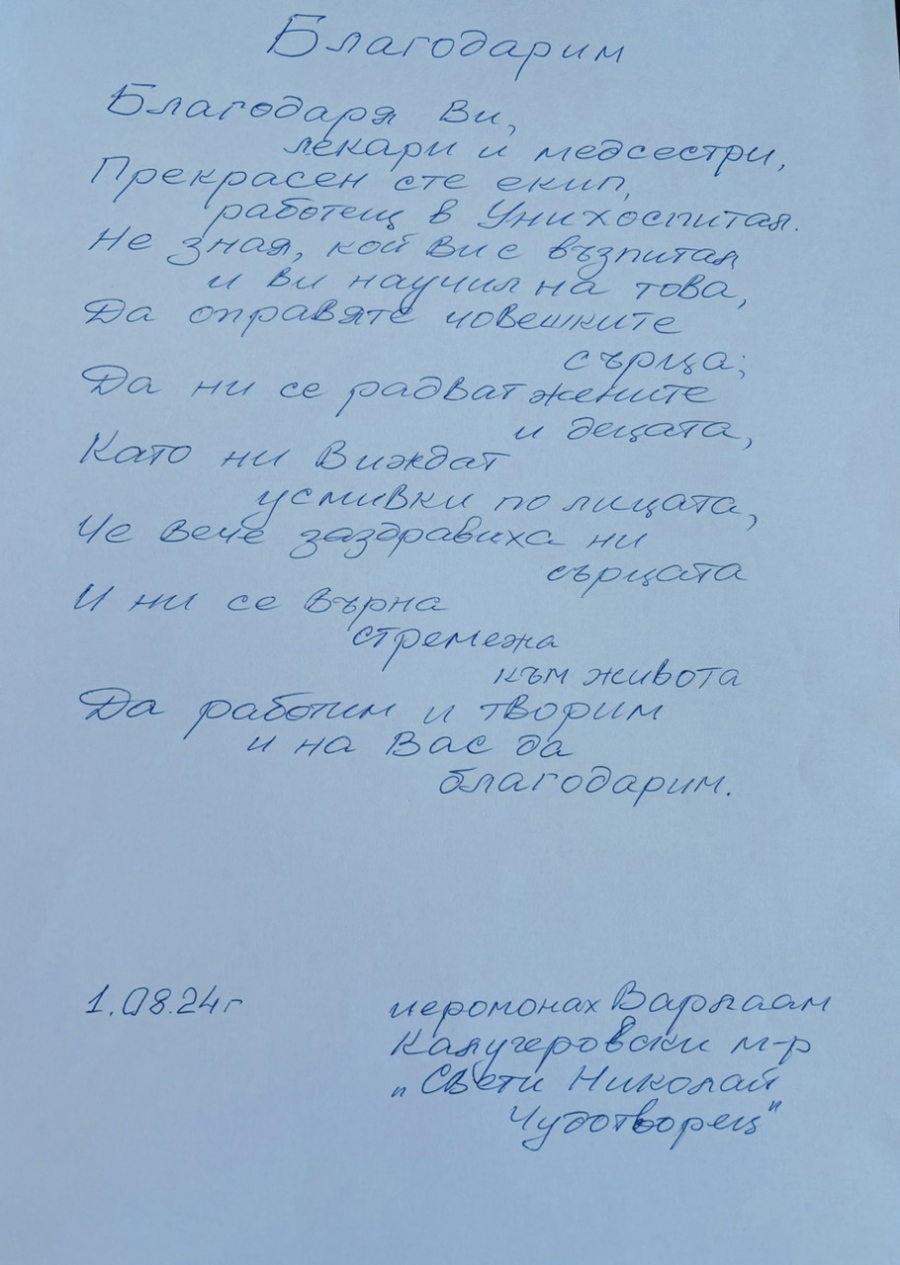 Благодарим
Благодаря Ви,
лекари и медсестри,
Прекрасен сте екип,
работещ в Унихоспитал.
Не зная, кой Ви е възпитал
и ви научил на това,
Да оправяте човешките
сърца;
Да ни се радват жените
и децата,
Като ни виждат
усмивки по лицата,
Че вече заздравиха ни
сърцата
И ни се върна
стремежа
към живота
Да работим и творим
и на Вас да
благодарим.
1.08.24г
иеромонах Варлаам
Калугеровски м-р
„Свети Николай
Чудотворец"